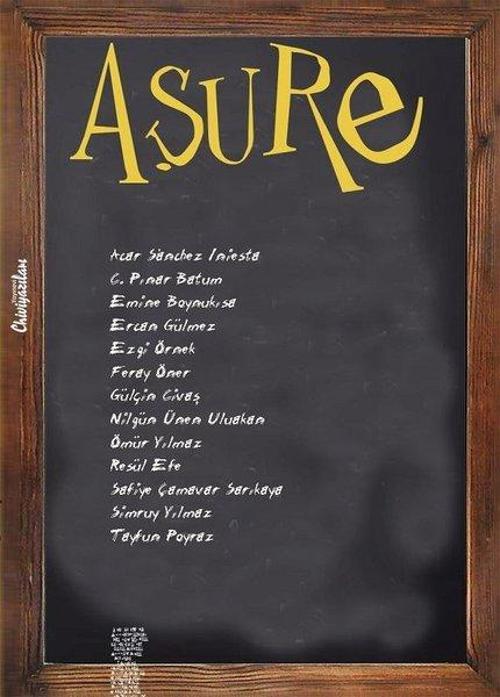 AŞURe
Acar Sánchez Iniesta
C. Pınar Batum
Emine Boynukısa
Ercan Gülmez
Ezgi Örnek
Feray Öner
Gülçin Civaş
Nilgün Ünen Uluakan
Ömür Yılmaz
Resül Efe
Safiye Çamavar Sarıkaya
Simruy Yılmaz
Tayfun Poyraz
Chiviyazıları